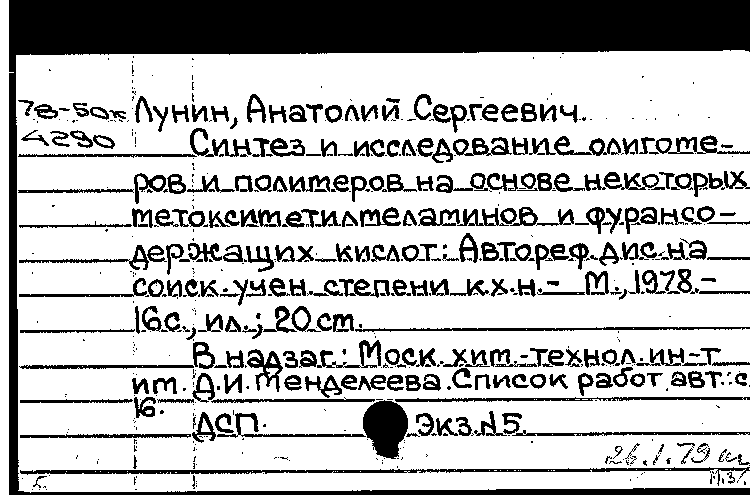 78-50к Лунин, Анатолий Сергеевич.
4290 Синтез и исследование олигоме-
ров и полимеров на основе некоторых
метоксиметилмеламинов и фурансо-
держащих кислот: Автореф. дис. на
соиск. учен. степени к.х.н.- М., 1978.-
16 с., ил.; 20 см.
В надзаг.: Моск. хим.-технол. ин-т
им. Д.И. Менделеева. Список работ авт.: с
16.
ДСП. Экз. №5.
26.1.79
М.31